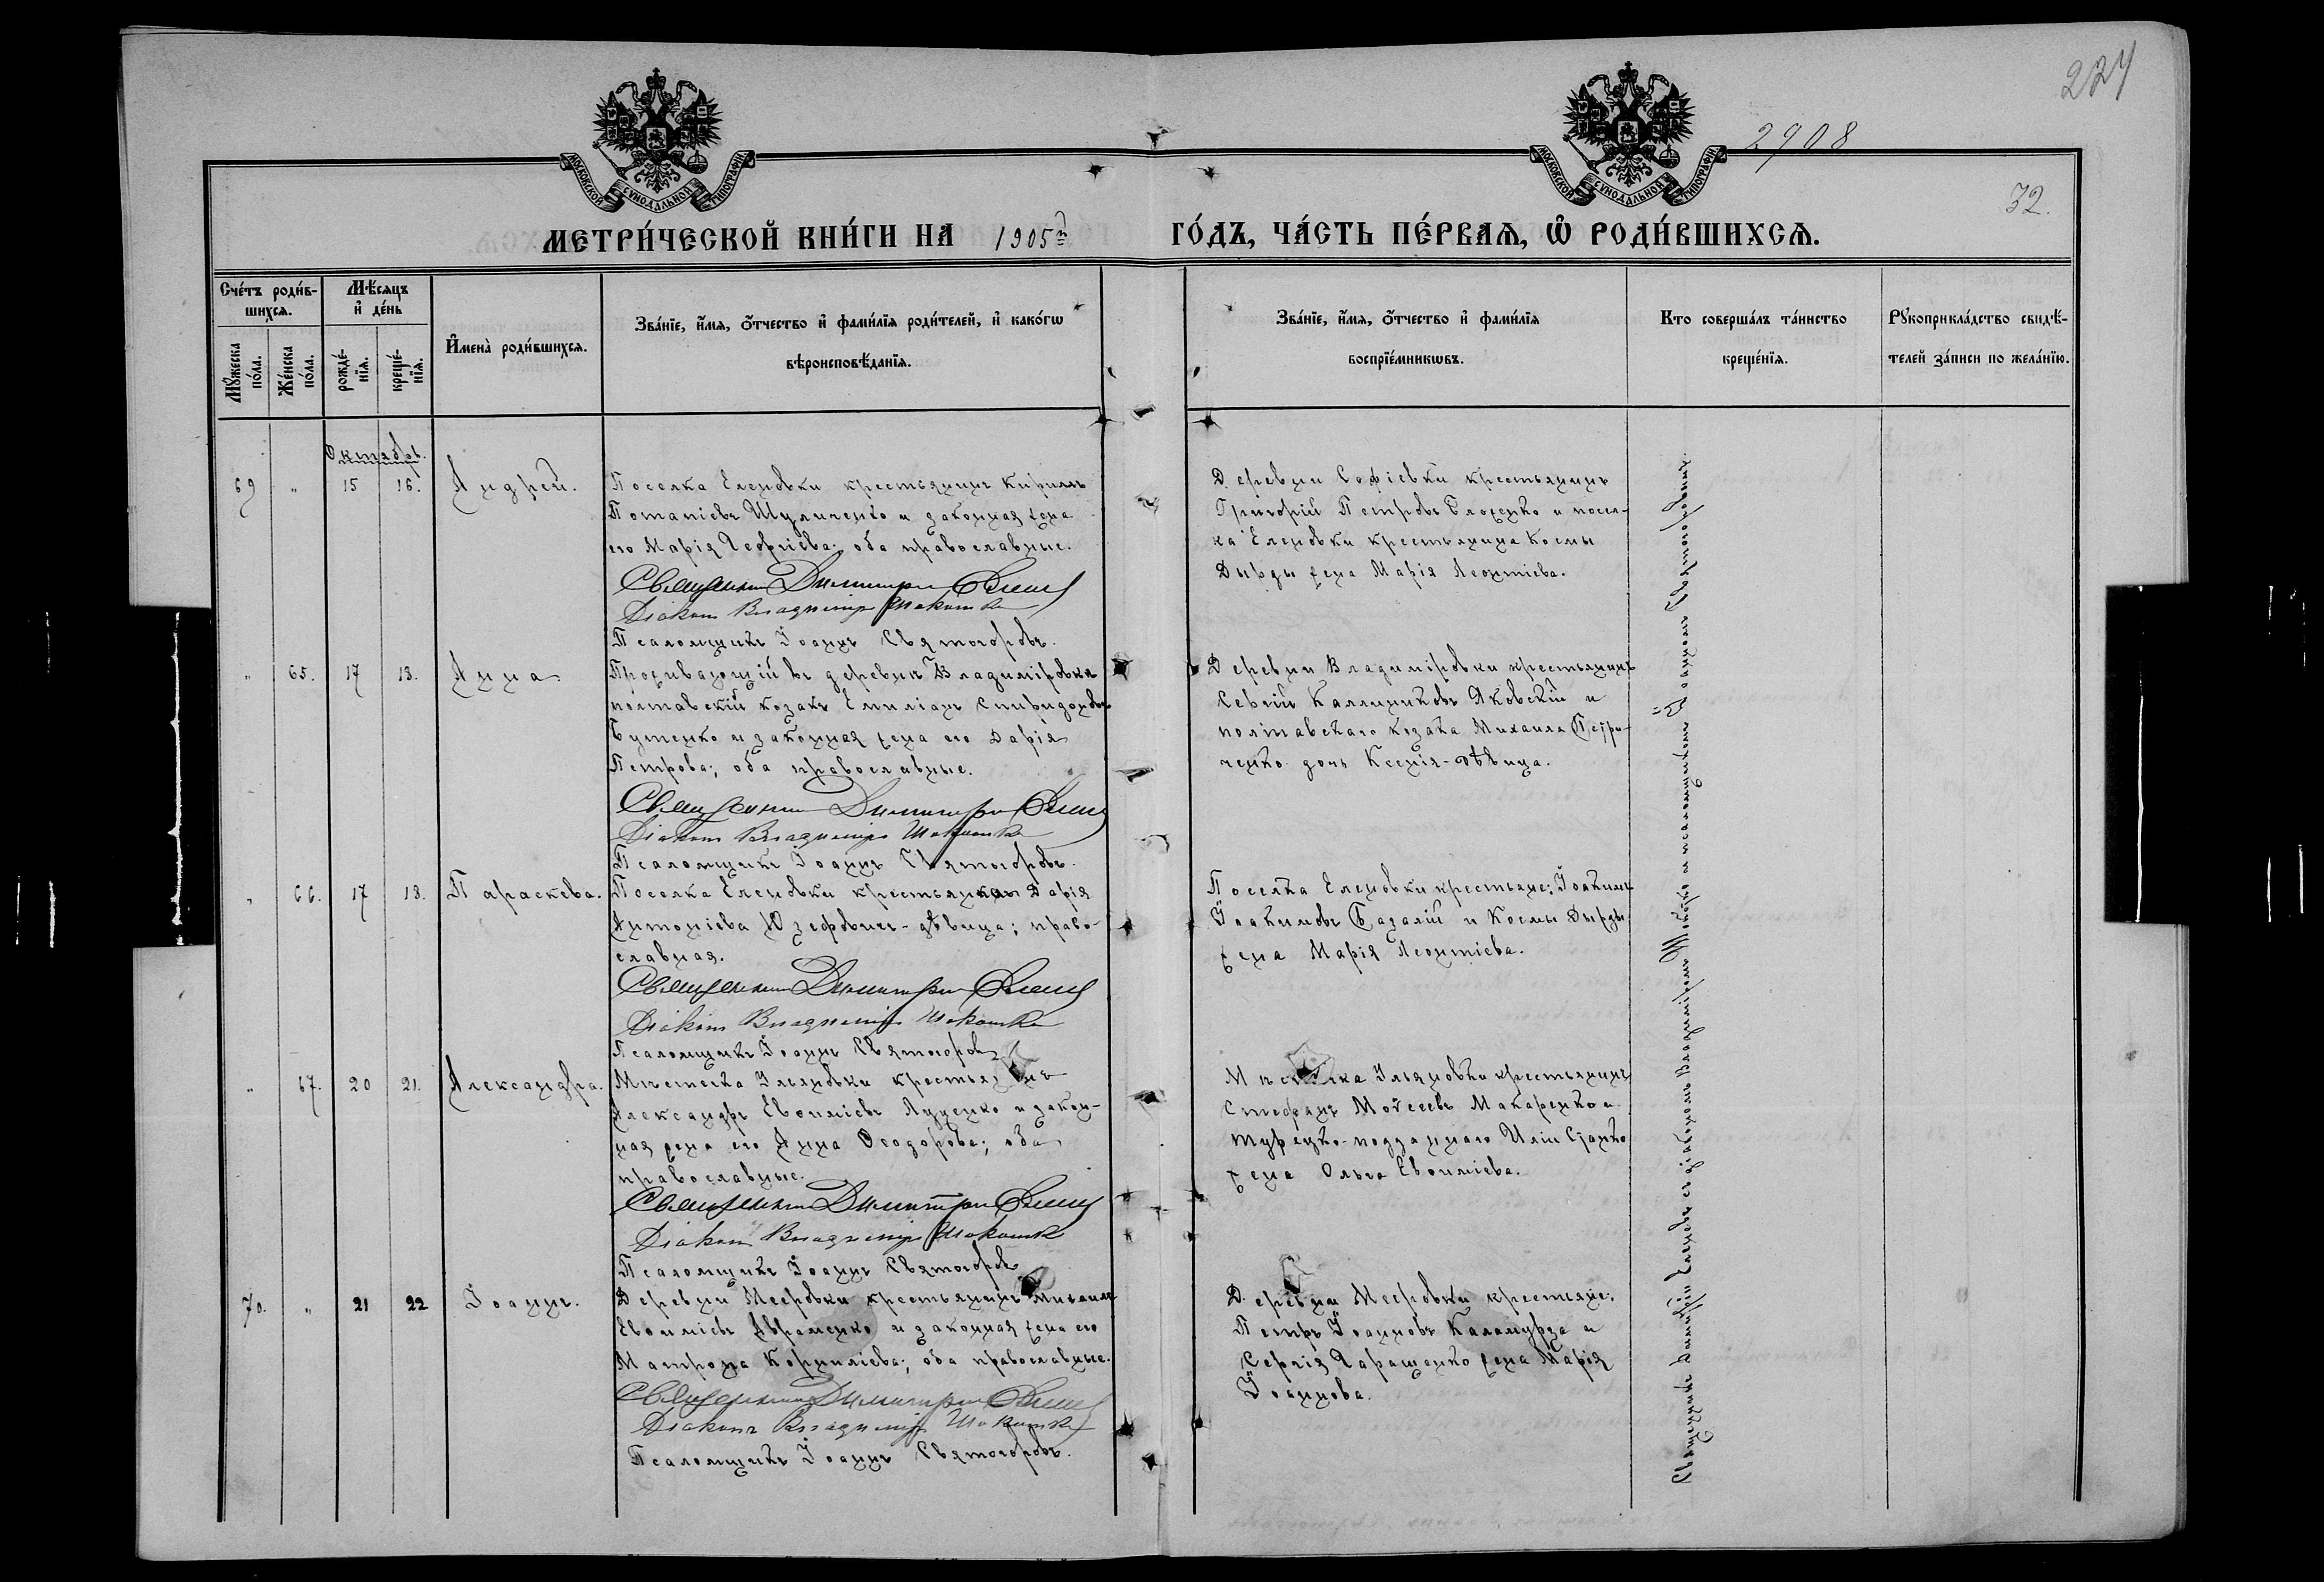 224
2908
32.
МОСКОВСКОЙ СУНОДАЛЬНОЙ ТИПОГРАФІИ
МОСКОВСКОЙ СУНОДАЛЬНОЙ ТИПОГРАФІИ
МЕТРИ́ЧЕСКОЙ КНИ́ГИ НА 1905й ГО́ДЪ, ЧА́СТЬ ПЕ́РВАѦ, Ѡ РОДИ́ВШИХСѦ.
Сче́тъ роди́в-
шихсѧ.
Мꙋ́жеска по́ла.
Же́нска по́ла.
Мѣ́сѧцъ
и҆ де́нь
рожде́-
нїѧ.
креще́-
нїѧ.
И҆мена̀ роди́вшихсѧ.
Зва́нїе, и҆́мѧ, ѻ҆́тчество и҆ фами́лїѧ роди́телей, и҆ како́гѡ
вѣроисповѣ́данїѧ.
Зва́нїе, и҆́мѧ, ѻ҆́тчество и҆ фами́лїѧ
воспрїе́мникѡвъ.
Кто соверша́лъ та́инство
креще́нїѧ.
Рꙋкоприкла́дство свидѣ́-
телей за́писи по жела́нїю.
Октябрь.
69 " 15 16. Андрей.
Поселка Еленовки крестьянинъ Кириллъ
Потапіевъ Шуличенко и законная жена
его Марія Георгіева; оба православные.
Священникъ Димитрій
Діаконъ Владиміръ
Псаломщикъ Іоаннъ Святогоровъ.
Деревни Софіевки крестьянинъ
Григорій Петровъ и посел-
ка Еленовки крестьянина Космы
Дырды жена Марія Леонтіева.
" 65. 17 18. Анна
Проживающій въ деревнѣ Владиміровкѣ
полтавскій козакъ Емиліанъ Спиридоновъ
Бутенко и законная жена его Дарія
Петрова; оба православные.
Священникъ Димитрій
Діаконъ Владиміръ
Псаломщикъ Іоаннъ Святогоровъ.
Деревни Владиміровки крестьянинъ
Сергій Каллиниковъ Яковскій и
полтавскаго козака Михаила Петри-
ченко дочь Ксенія-дѣвица.
" 66. 17 18. Параскева.
Поселка Еленовки крестьянка Дарія
Антоніева Юзефовичъ-дѣвица; право-
славная.
Священникъ Димитрій
Діаконъ Владиміръ
Псаломщикъ Іоаннъ Святогоровъ
Поселка Еленовки крестьяне: Іоакимъ
Іоакимовъ Бадалій и Космы Дырды
жена Марія Леонтіева.
" 67. 20 21. Александра.
Мѣстечка Ильяновки крестьянинъ
Александръ Евѳиміевъ Луценко и закон-
ная жена его Анна Ѳеодорова; оба
православные.
Священникъ Димитрій
Діаконъ Владиміръ
Псаломщикъ Іоаннъ Святогоровъ
Мѣстечка Ильяновки крестьянинъ
Стефанъ Моѵсеевъ Макаренко и
турецко-подданнаго Иліи Станко
жена Ольга Евѳиміева.
70. " 21 22 Іоаннъ.
Деревни Мееровки крестьянинъ Михаилъ
Евѳиміевъ Авраменко и законная жена его
Матрона Корниліева; оба православные.
Священникъ Димитрій
Діаконъ Владиміръ
Псаломщикъ Іоаннъ Святогоровъ.
Деревни Мееровки крестьяне:
Петръ Іоанновъ Каламурза и
Сергія Гаращенко жена Марія
Іоаннова.
Священникъ Димитрій Еленевъ съ діакономъ Владиміромъ и псаломщикомъ Іоанномъ Святогоровымъ.